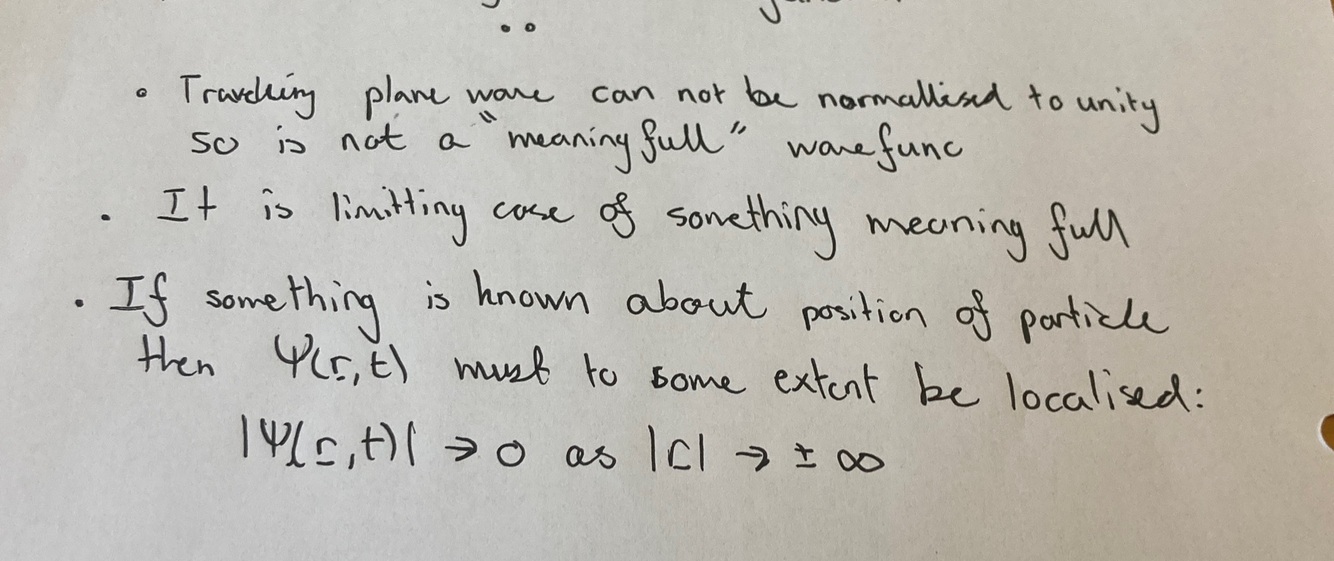 • Travelling plane wave can not be normallised to unity
so is not a "meaningfull" wavefunc
• It is limitting case of something meaning full
• If something is known about position of particle
then Ψ(r̲,t) must to some extent be localised:
|Ψ(r̲,t)| → 0 as |r̲| → ± ∞